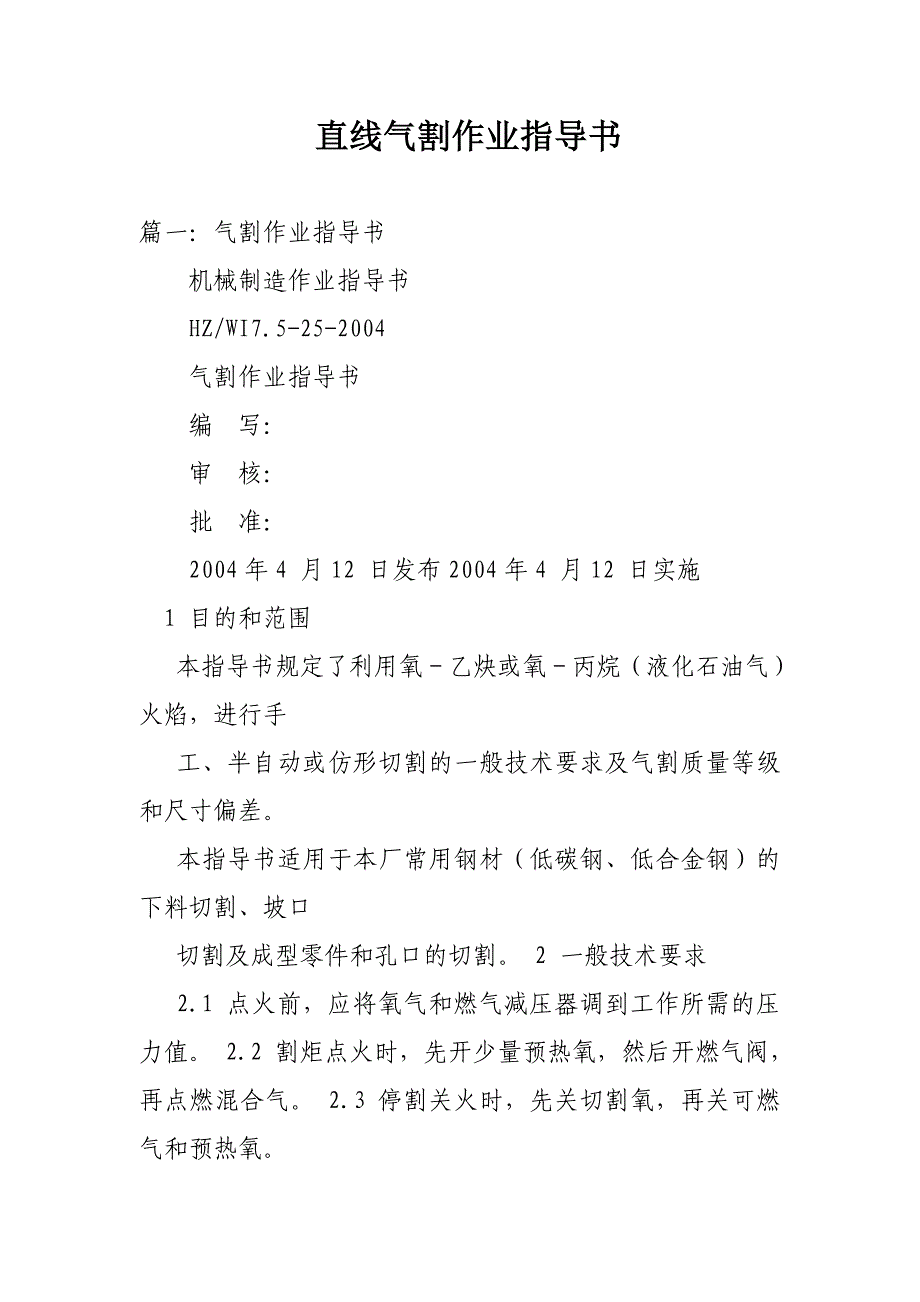 直线气割作业指导书
篇一：气割作业指导书
机械制造作业指导书
HZ/WI7.5-25-2004
气割作业指导书
编 写：
审 核：
批 准：
2004年4 月12 日发布2004年4 月12 日实施
1 目的和范围
本指导书规定了利用氧－乙炔或氧－丙烷（液化石油气）
火焰，进行手
工、半自动或仿形切割的一般技术要求及气割质量等级
和尺寸偏差。
本指导书适用于本厂常用钢材（低碳钢、低合金钢）的
下料切割、坡口
切割及成型零件和孔口的切割。 2 一般技术要求
2.1 点火前，应将氧气和燃气减压器调到工作所需的压
力值。 2.2 割炬点火时，先开少量预热氧，然后开燃气阀，
再点燃混合气。 2.3 停割关火时，先关切割氧，再关可燃
气和预热氧。